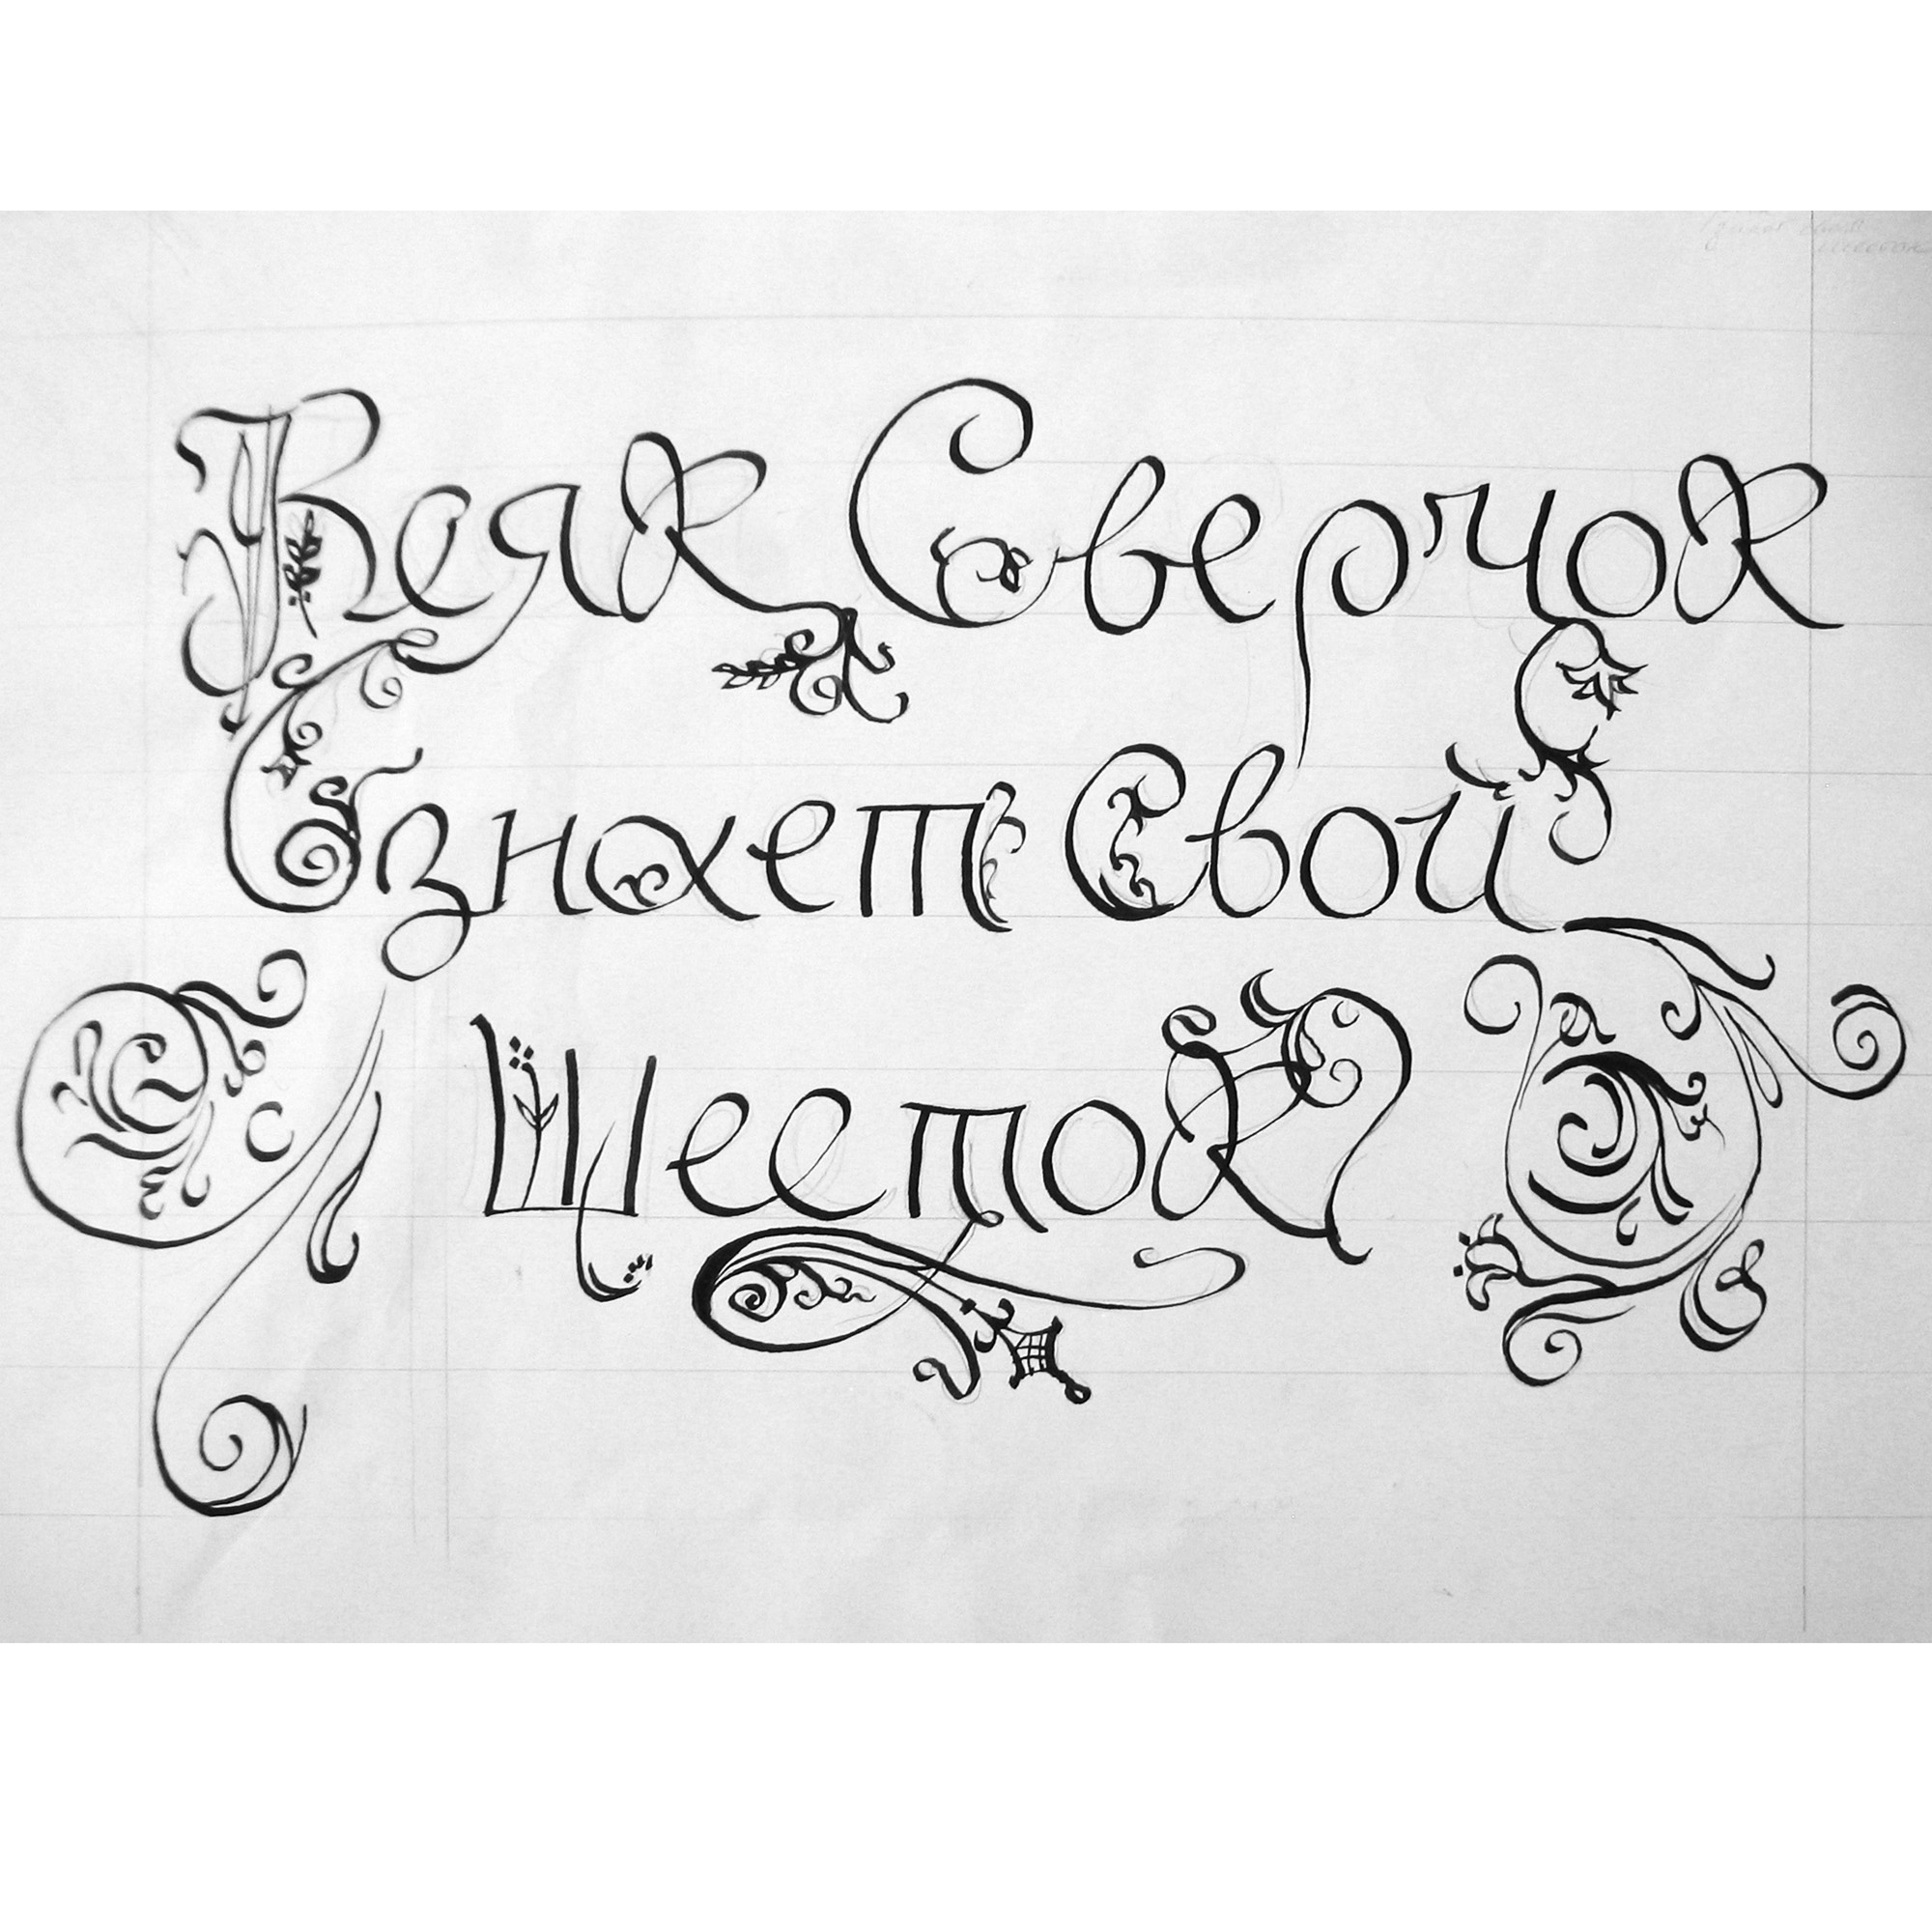 Всяк Сверчок
знает Свой
Шесток